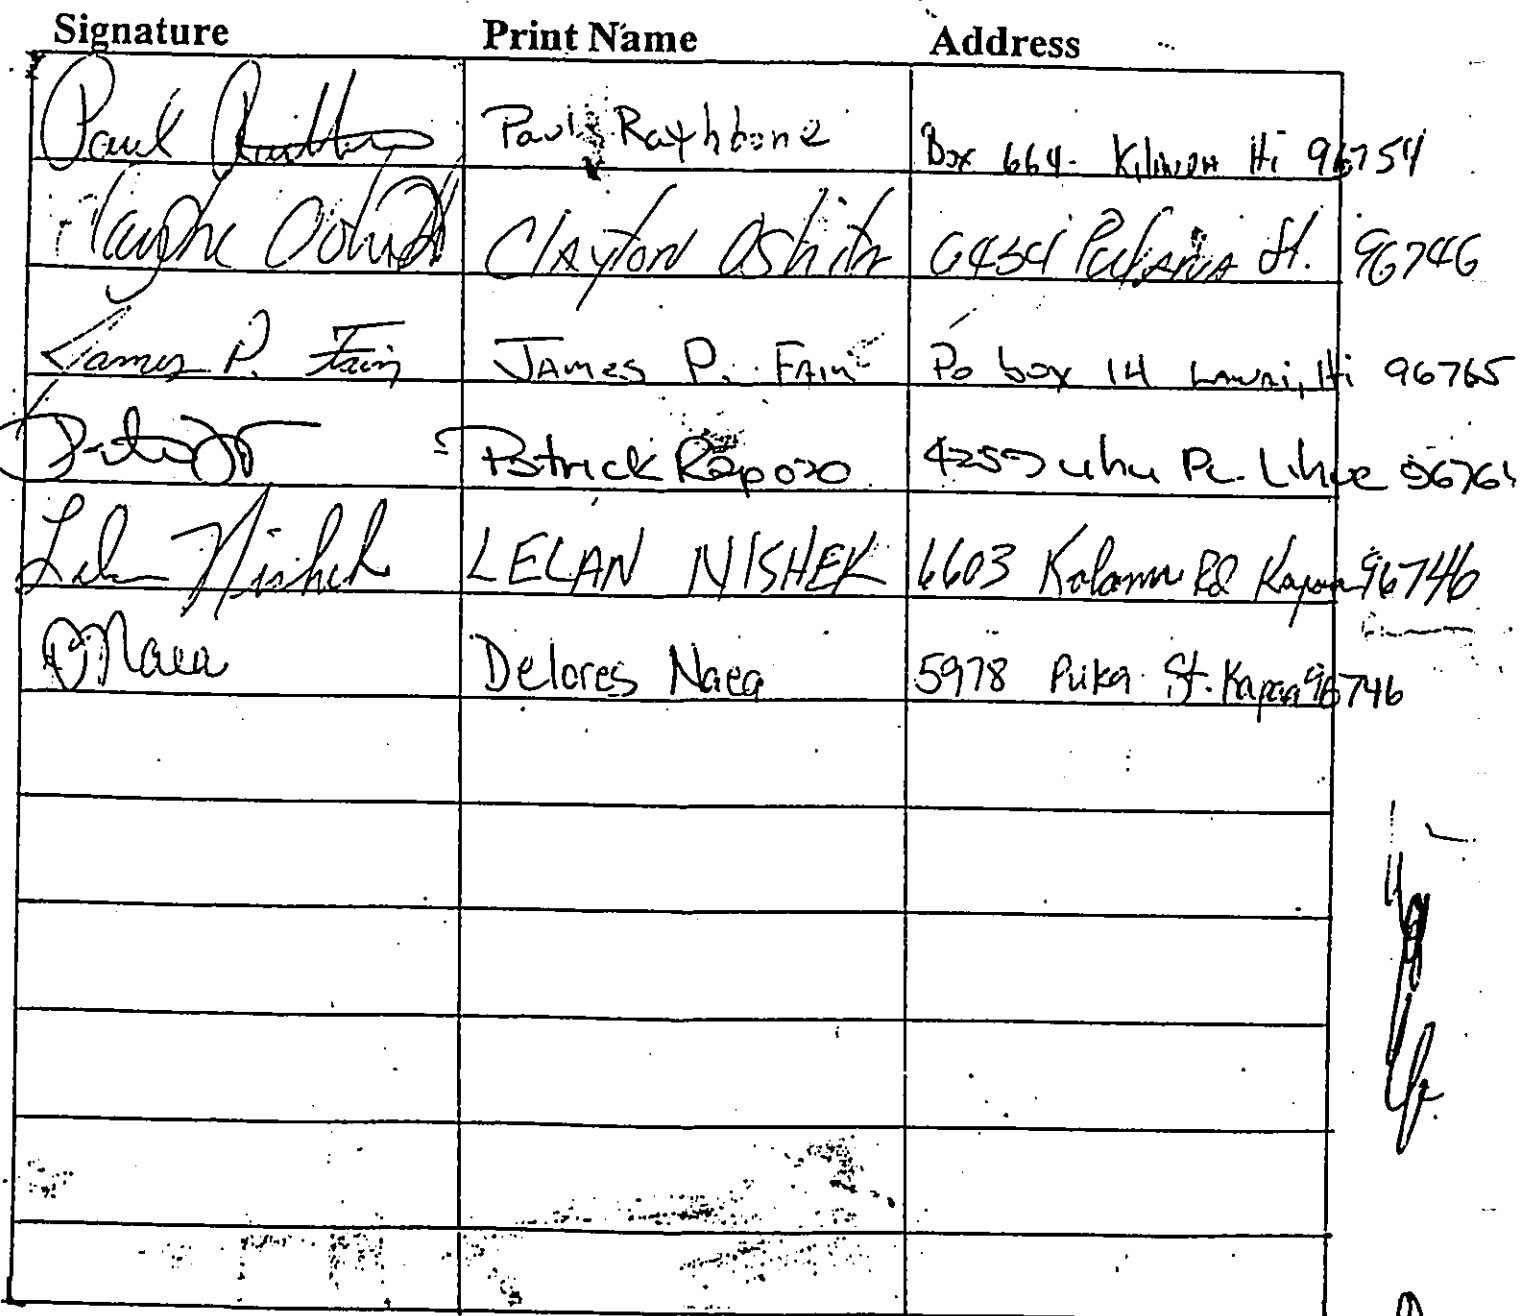 Signature Print Name Address
Paul Paul Rathbone Box 664- Kilauea Hi 96754
Clayton 6434 St. 96746
James P. Fain James P. Fain Po box 14 Lawai, Hi 96765
Patrick Raposo uhu Lihue
Nishek LELAN NISHEK 6603 Kalama Rd Kapaa 96746
DNaea Delores Naea 5978 Puka St. Kapaa 96746